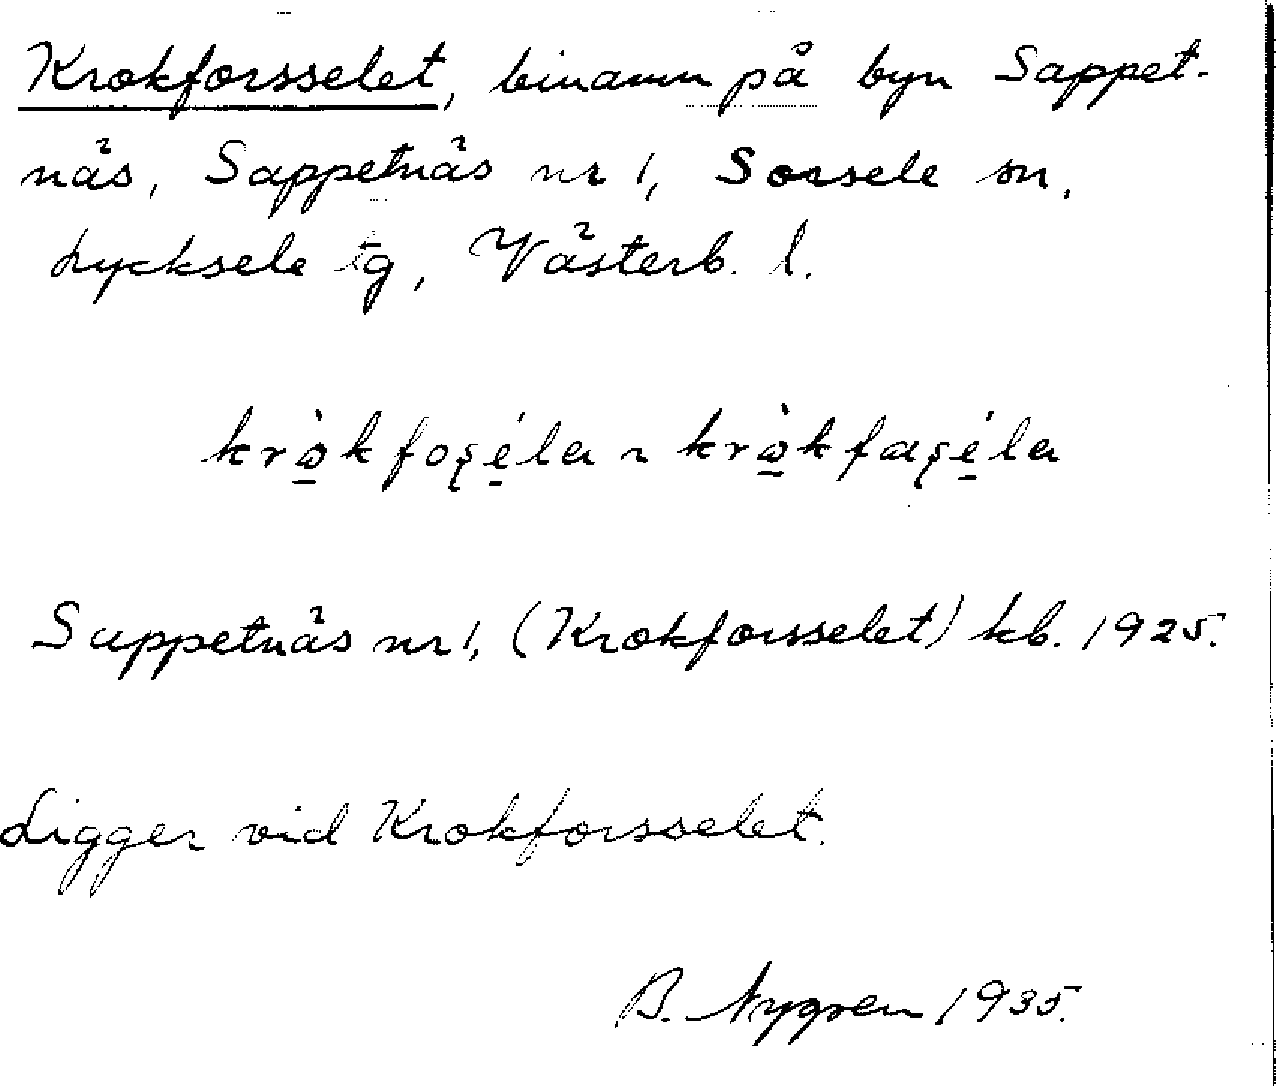 Krokforsselet, binamn på byn Sappet-
näs, Sappetnäs nr 1, Sorsele sn.
Lycksele tg, Västerb. l.
krò̠kfoʂé̠la ~ krò̠kfaʂé̠la
Sappetnäs nr 1, (Krokforsselet) kb. 1925.
Ligger vid Krokforsselet.
B. Nygren 1935.